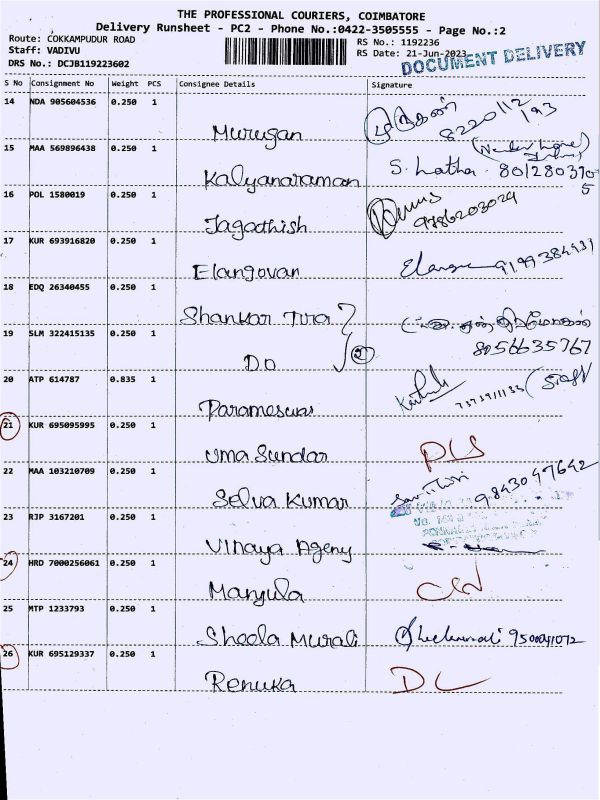 THE PROFESSIONAL COURIERS, COIMBATORE
Delivery Runsheet - PC2 - Phone No.:0422-3505555 - Page No.:2
Route: COKKAMPUDUR ROAD
Staff: VADIVU
DRS No.: DCJB119223602
RS No.: 1192236
RS Date: 21-Jun-2023
DOCUMENT DELIVERY
S No Consignment No Weight PCS Consignee Details Signature
14 NDA 905604536 0.250 1
Murugan முருகன் 8220112193
15 MAA 569896438 0.250 1
Kalyanaraman S. Latha 8012803705
16 POL 1580019 0.250 1
Jagathish 9786203029
17 KUR 693916820 0.250 1
Elangovan 9199384931
18 EDQ 26340455 0.250 1
Shankar Tvra
19 SLM 322415135 0.250 1
DO 2 8056635767
20 ATP 614787 0.835 1
Parameswar 7373911133
21 KUR 695095995 0.250 1
Uma Sundar
22 MAA 103210709 0.250 1
Selva Kumar 9843047642
23 RJP 3167201 0.250 1
Vinaya Ageny
24 HRD 7000256061 0.250 1
Manjula
25 MTP 1233793 0.250 1
Sheela Murali
26 KUR 695129337 0.250 1
Renuka DL